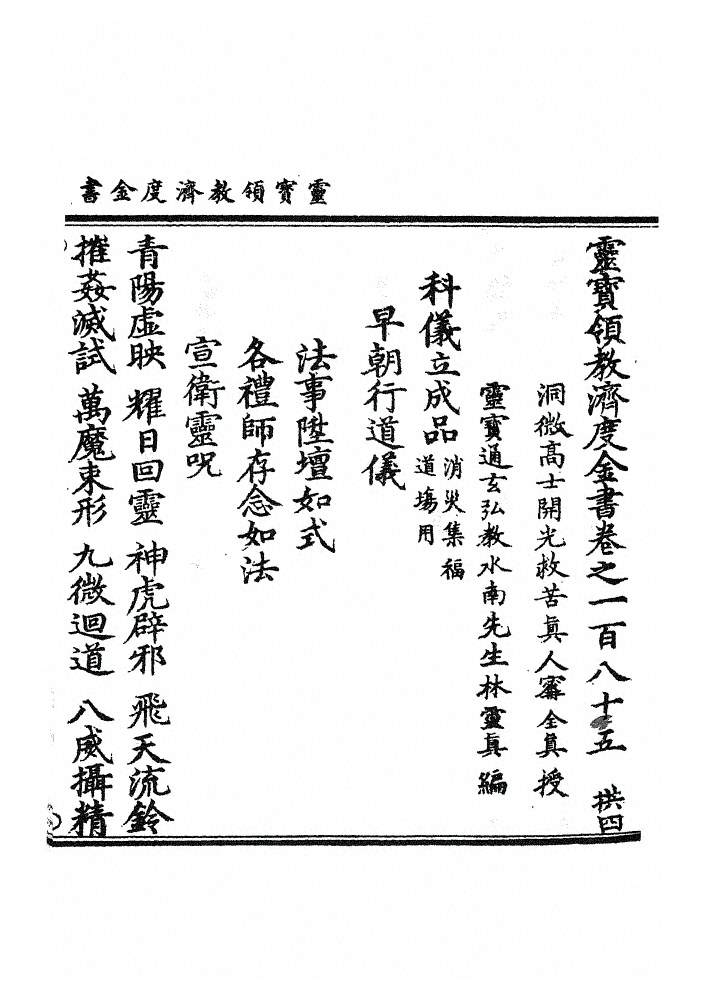 靈寶領教濟度金書
靈寶領教濟度金書卷之一百八十五 拱四
洞微高士開光救苦眞人甯全眞授
靈寶通玄弘教水南先生林靈眞編
科儀立成品 消災集福道場用
早朝行道儀
法事陞壇如式
各禮師存念如法
宣衛靈呪
青陽虛映 耀日回靈 神虎辟邪 飛天流鈴
摧姦滅試 萬魔束形 九微迴道 八威攝精